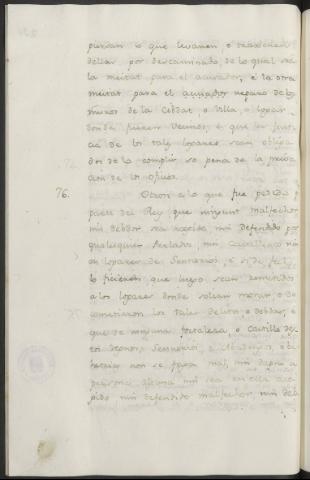 pierdan lo que levaren, o
dellas por descaminado, de lo qual sea
la meitat para el acusador, e la otra
meitat para el reparo de los
muros de la Cibdat, o Villa, o logar
donde fueren Vecinos, e que las
cia de los tales logares sean obliga
dos de lo complir so pena de la priva
cion de los oficios.
76. Otrosi a lo que fue pedido p
parte del Rey que ningunt malfechor
nin debdor sea acogido nin defendido por
qualesquier Perlados, nin Cavalleros nin
en logares de Sennorios, e si de fecho
lo ficieren que luego sean remitidos
a los logares donde solian morar, o do
cometieron los tales delitos, o debdas, e
que de ninguna fortaleza, o Castillo de
Sennorio, e Abadengo, o be
hetria non se faga mal, nin danno a
persona alguna nin sea en ella aco
gido nin defendido malfechor, nin deb